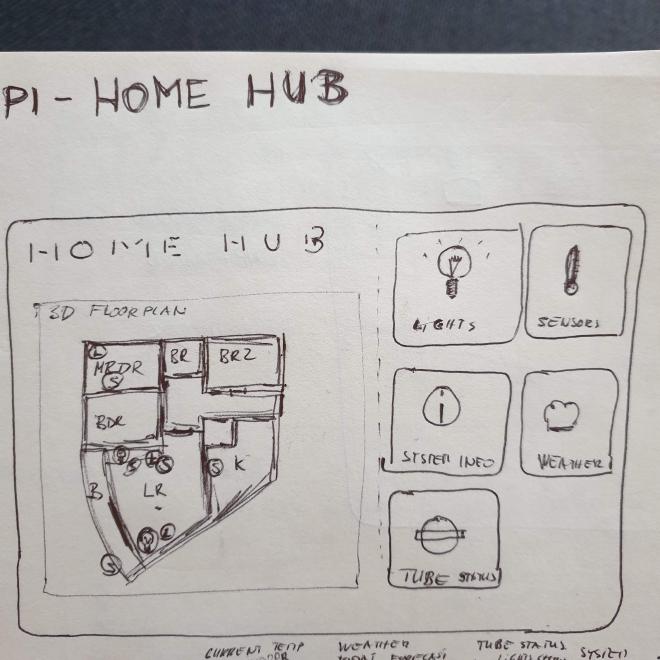 PI - HOME HUB
HOME HUB
3D FLOORPLAN
L
MBDR
S
BR
BR2
BDR
S
S
B
LR
S
K
L
S
LIGHTS
SENSORS
i
SYSTEM INFO
WEATHER
TUBE STATUS
CURRENT TEMP
WEATHER
TUBE STATUS
SYSTEM
FORECAST